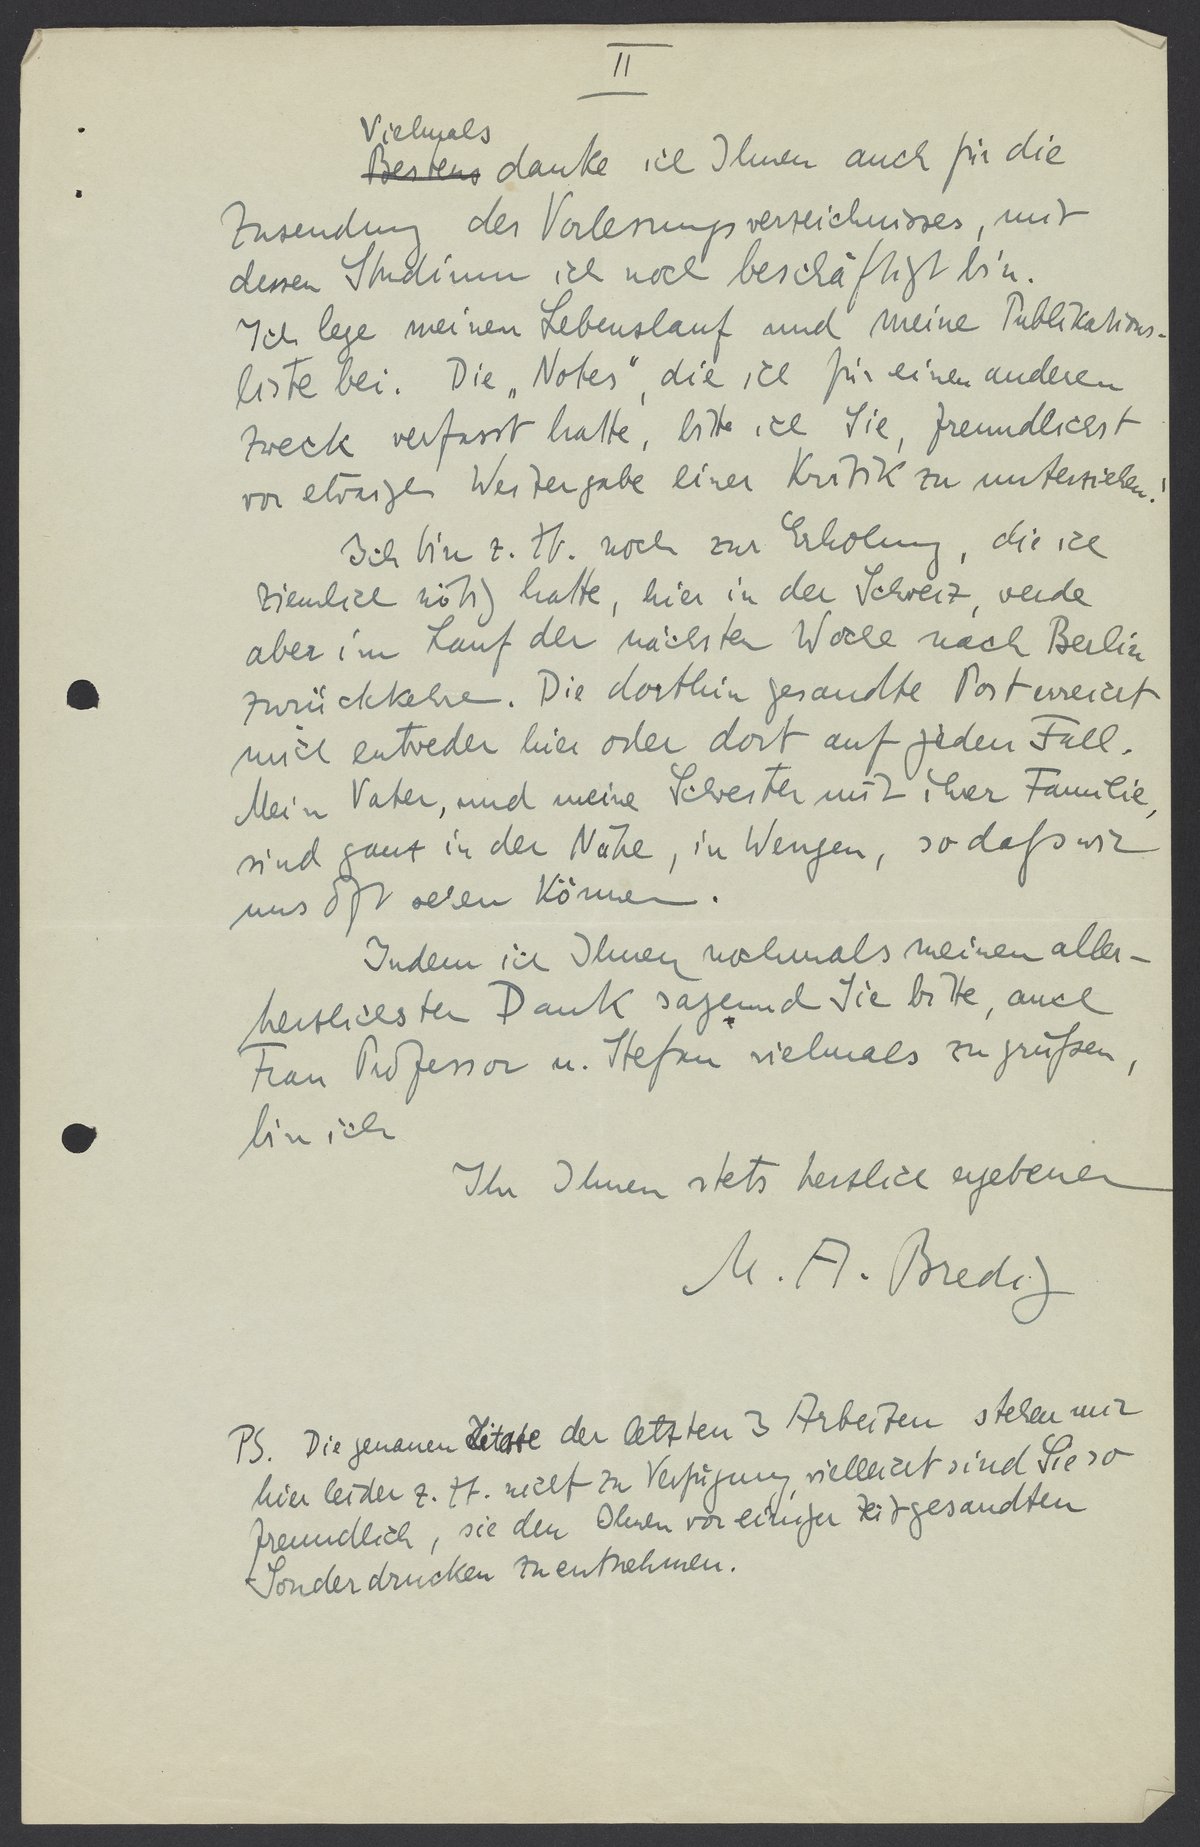 II
Vielmals
Bestens danke ich Ihnen auch für die
Zusendung des Vorlesungsverzeichnisses, mit
dessen Studium ich noch beschäftigt bin.
Ich lege meinen Lebenslauf und meine Publikations-
liste bei. Die „Notes", die ich für einen anderen
Zweck verfasst hatte, bitte ich Sie, freundlichst
vor etwaiger Weitergabe einer Kritik zu unterziehen!
Ich bin z. Zt. noch zur Erholung, die ich
ziemlich nötig hatte, hier in der Schweiz, werde
aber im Lauf der nächsten Woche nach Berlin
zurückkehren. Die dorthin gesandte Post erreicht
mich entweder hier oder dort auf jeden Fall.
Mein Vater, und meine Schwester mit ihrer Familie,
sind ganz in der Nähe, in Wengen, so daß wir
uns oft sehen können.
Indem ich Ihnen nochmals meinen aller-
herzlichsten Dank sage und Sie bitte, auch
Frau Professor u. Stefan vielmals zu grüßen,
bin ich
Ihr Ihnen stets herzlich ergebener
M. A. Bredig
PS. Die genauen Zitate der letzten 3 Arbeiten stehen mir
hier leider z. Zt. nicht zu Verfügung, vielleicht sind Sie so
freundlich, sie den Ihnen vor einiger Zeit gesandten
Sonderdrucken zu entnehmen.